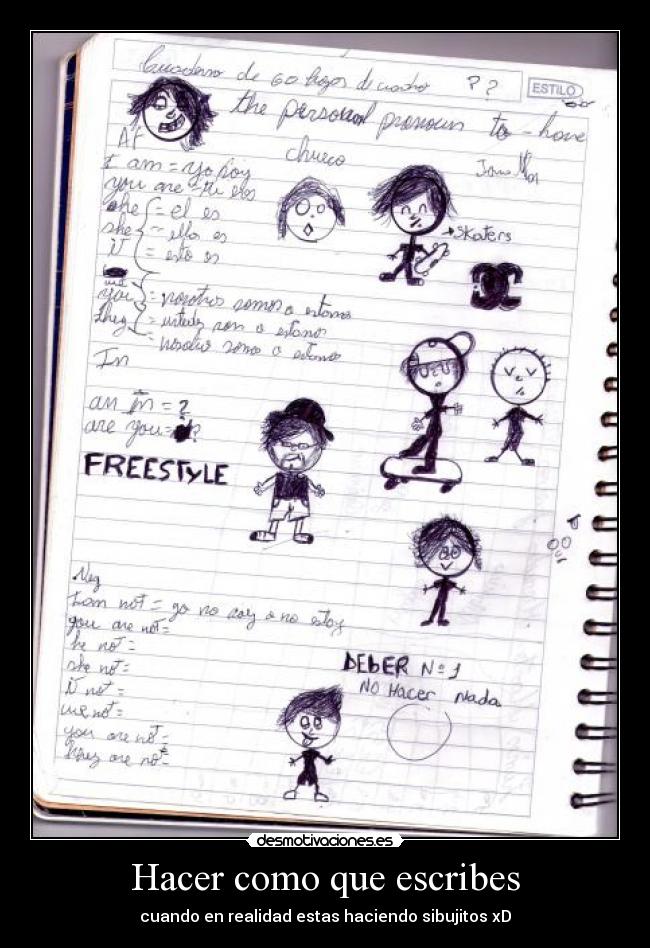 Cuaderno de 60 hojas de cuadro ? ?
ESTILO
the personal pronoun to - have
Af
chueco
I am = yo soy
you are = tu eres
he = el es
she = ella es
it = esto es
→ Skaters
we
you = nosotros somos o estamos
they = ustedes son o estanos
= nosotros somos o estamos
In
am = ?
are you = ?
FREESTYLE
Neg
I am not = yo no soy o no estoy
you are not =
he not =
she not =
it not =
we not =
you are not =
they are not =
DEBER Nº 1
NO Hacer Nada
desmotivaciones.es
Hacer como que escribes
cuando en realidad estas haciendo sibujitos xD